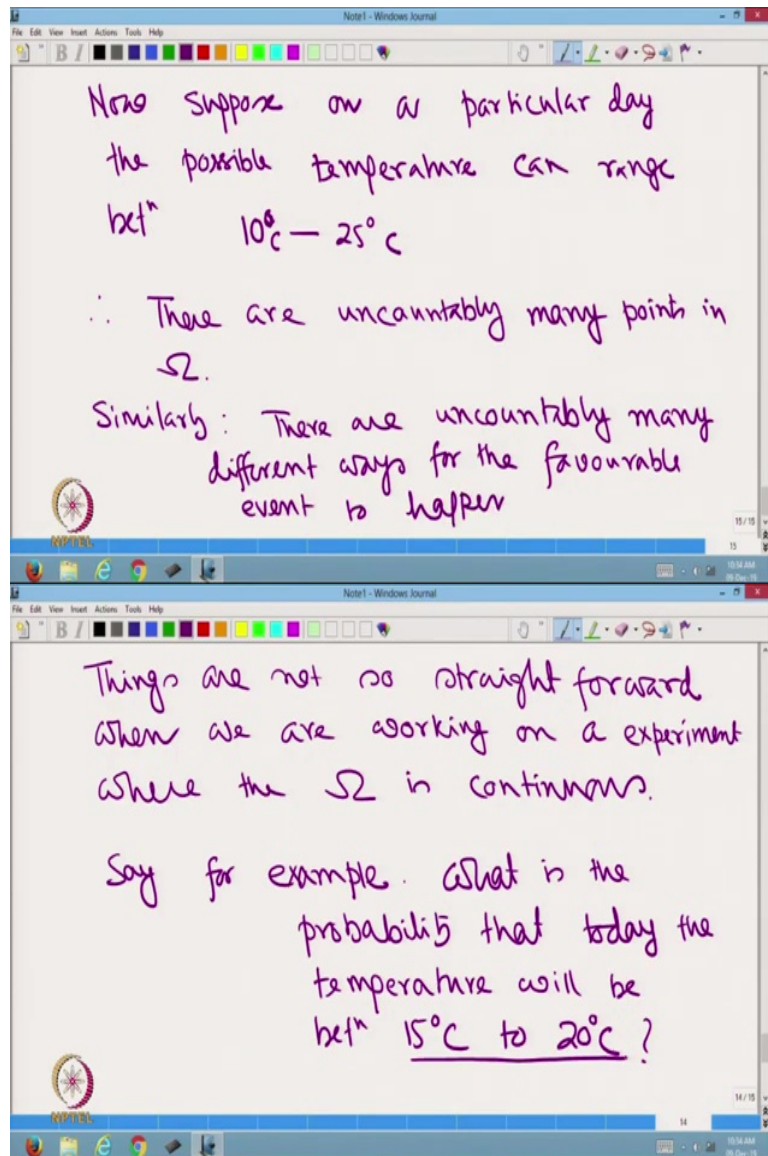 Note1 - Windows Journal
File Edit View Insert Actions Tools Help
Now suppose on a particular day
the possible temperature can range
betⁿ 10°C — 25°C
∴ There are uncountably many points in
Ω.
Similarly : There are uncountably many
different ways for the favourable
event to happen
NPTEL
15/15
15
10:54 AM
09-Dec-19
Note1 - Windows Journal
File Edit View Insert Actions Tools Help
Things are not so straight forward
when we are working on a experiment
where the Ω is continuous.
Say for example. What is the
probability that today the
temperature will be
betⁿ 15°C to 20°C ?
NPTEL
14/15
14
10:54 AM
09-Dec-19